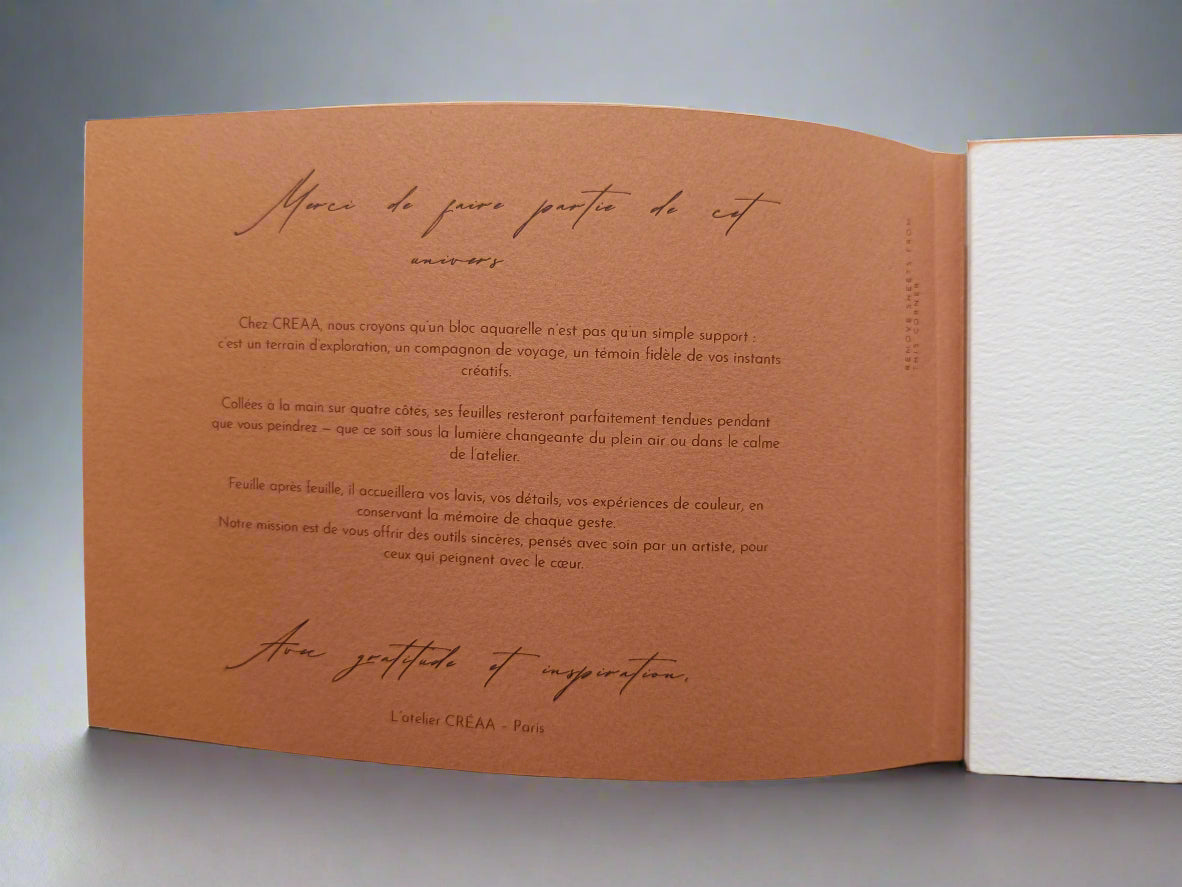 Merci de faire partie de cet
univers
Chez CREAA, nous croyons qu'un bloc aquarelle n'est pas qu'un simple support :
c'est un terrain d'exploration, un compagnon de voyage, un témoin fidèle de vos instants
créatifs.
Collées à la main sur quatre côtés, ses feuilles resteront parfaitement tendues pendant
que vous peindrez – que ce soit sous la lumière changeante du plein air ou dans le calme
de l'atelier.
Feuille après feuille, il accueillera vos lavis, vos détails, vos expériences de couleur, en
conservant la mémoire de chaque geste.
Notre mission est de vous offrir des outils sincères, pensés avec soin par un artiste, pour
ceux qui peignent avec le cœur.
Avec gratitude et inspiration.
L'atelier CRÉAA - Paris
REMOVE SHEETS FROM
THIS CORNER